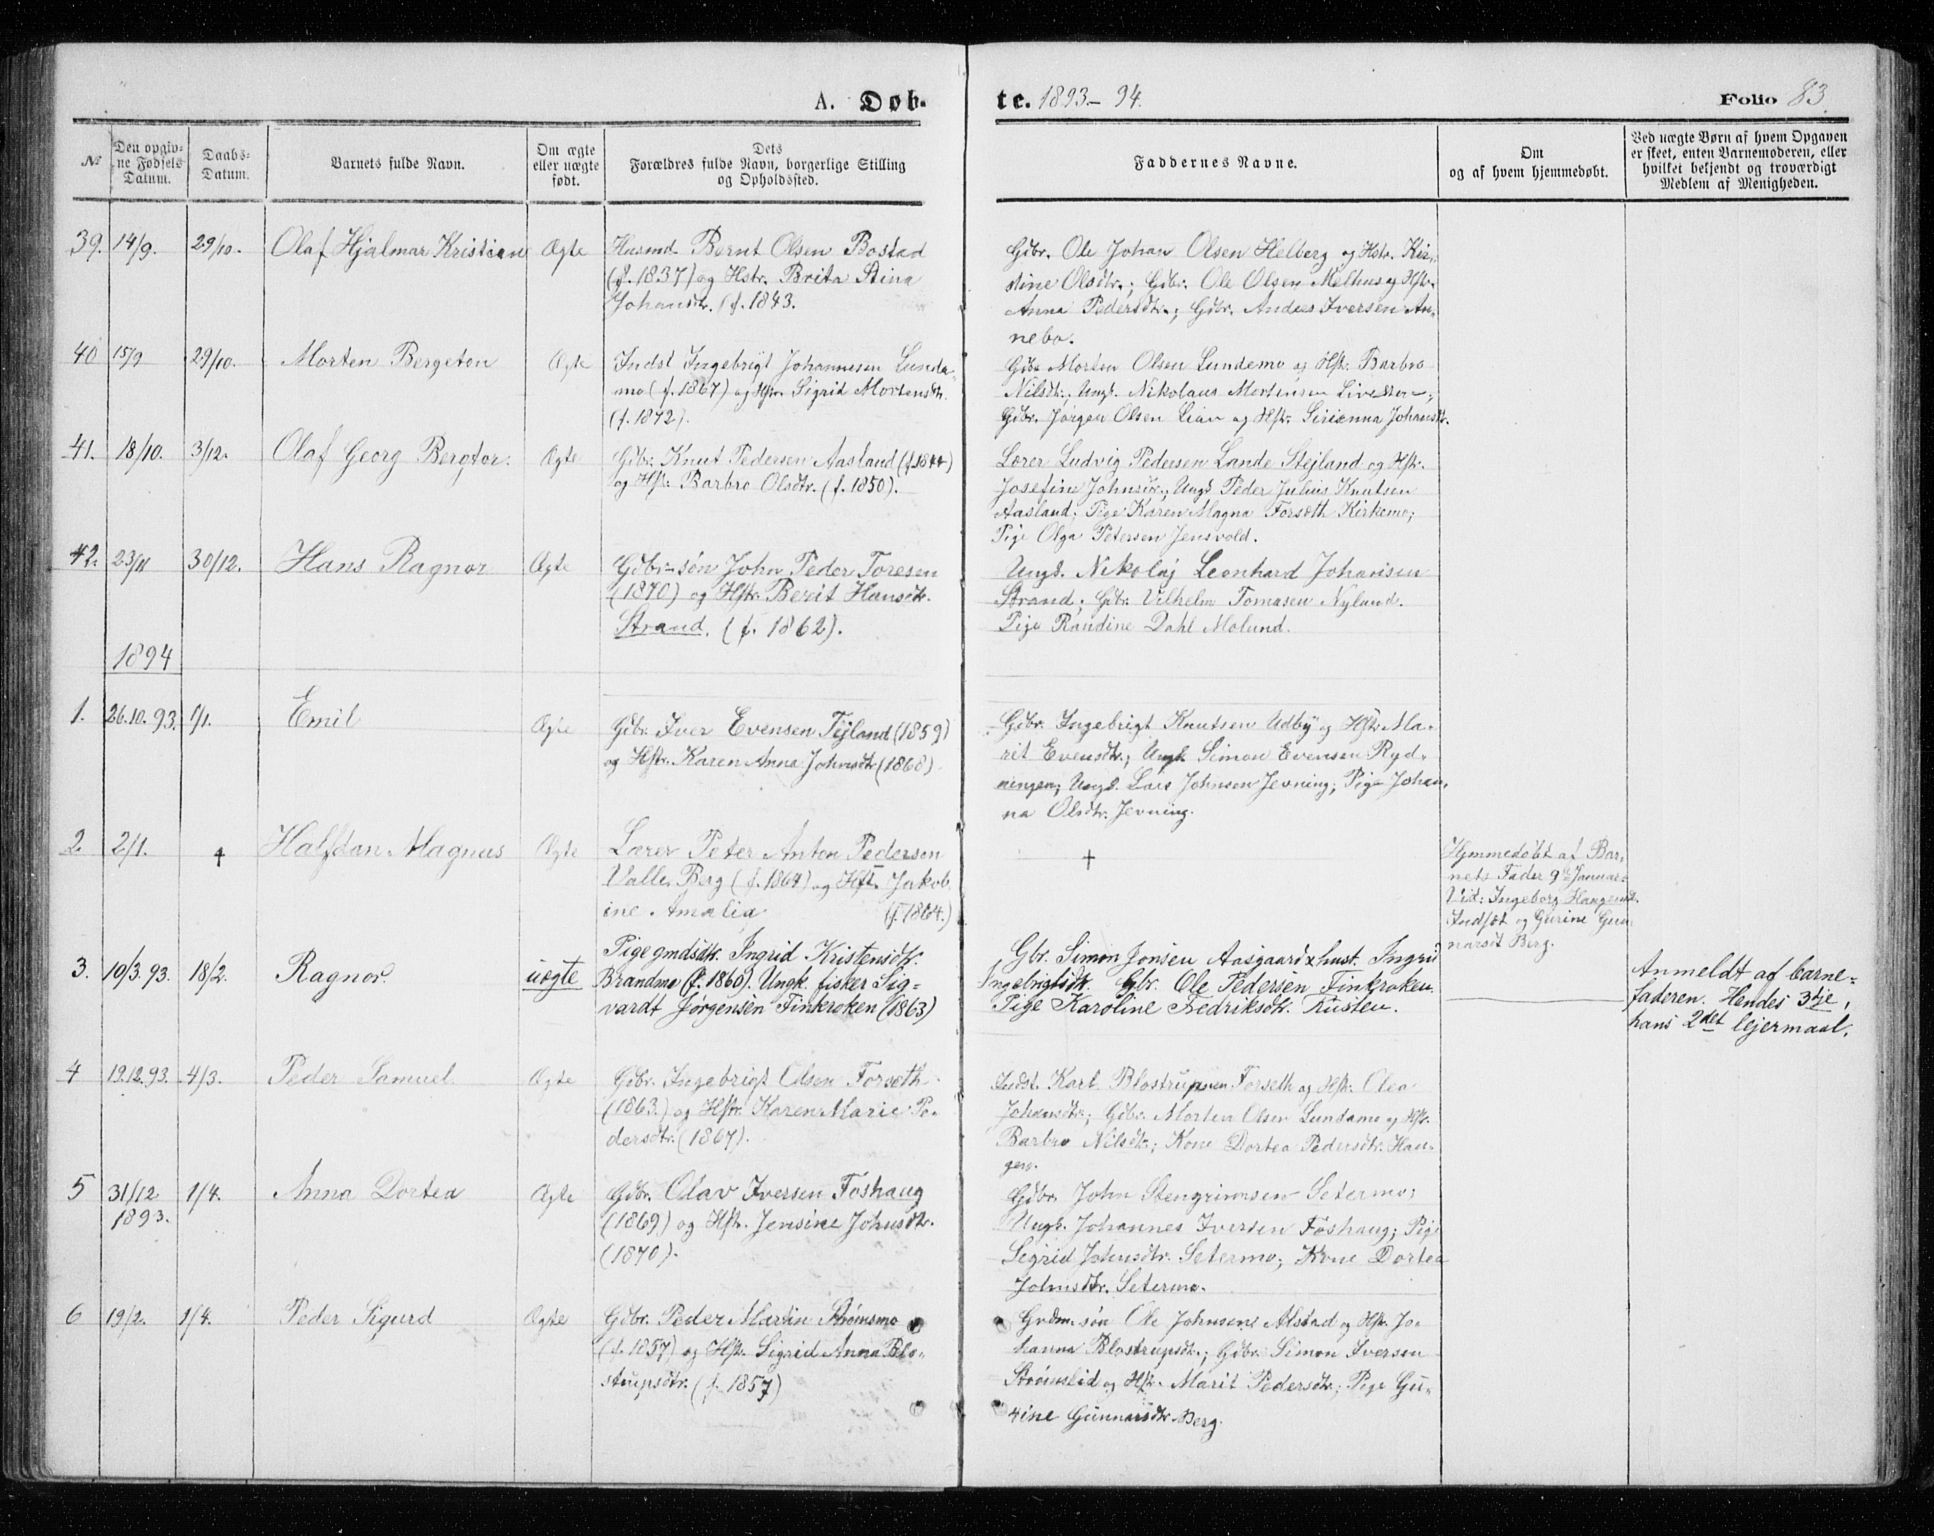 A. Døb-
te. 1893-94.
Folio 83.
№
Den opgiv-
ne Fødsels
Datum.
Daabs-
Datum.
Barnets fulde Navn.
Om ægte
eller uægte
født.
Dets
Forældres fulde Navn, borgerlige Stilling
og Opholdssted.
Faddernes Navne.
Om
og af hvem hjemmedøbt.
Ved uægte Børn af hvem Opgaven
er skeet, enten Barnemoderen, eller
hvilket bekjendt og troværdigt
Medlem af Menigheden.
39. 14/9. 29/10. Olaf Hjalmar Kristian Ægte
Husmd. Bernt Olsen Bostad
(f. 1837) og Hstr. Brita Stina
Johansdtr. (f. 1843.
Gdbr. Ole Johan Olsen Helberg og Hstr. Kir-
stine Olsdtr.; Gdbr. Ole Olsen Melhus og Hstr.
Anna Pedersdtr.; Gdbr. Andres Iversen An-
nebo.
40 15/9 29/10. Morten Bergeton Ægte
Indst. Ingebrigt Johannesen Lunda-
mo (f. 1867) og Hstr. Sigrid Mortensdtr.
(f. 1872).
Gdbr. Morten Olsen Lundemo og Hstr. Barbro
Nilsdtr.; Ungk. Nikolaus Mortensen
Gdbr. Jørgen Olsen Lian og Hstr. Sirianna Johansdtr.
41. 18/10. 3/12. Olaf Georg Bergtor. Ægte
Gdbr. Knut Pedersen Aasland
og Hstr. Barbro Olsdtr. (f. 1850).
Lærer Ludvig Pedersen Lande Stejland og Hstr.
Josefine Johnsdtr.; Ungk. Peder Julius Knutsen
Aasland; Pige Karen Magna Forseth Kirkemo;
Pige Olga Petersen Jensvold.
42. 23/11 30/12. Hans Ragnor Ægte
Gdbr.-søn John Peder Toresen
(1870) og Hstr. Berit Hansdtr.
Strand. (f. 1862).
Ungk. Nikolaj Leonhard Johansen
Strand; Gdbr. Vilhelm Tomasen Nyland.
Pige Randine Dahl Molund.
1894
1. 26.10.93. 1/1. Emil Ægte
Gdbr. Iver Evensen Fejland (1859)
og Hstr. Karen Anna Johnsdtr. (1868)
Gdbr. Ingebrigt Knutsen Udby og Hstr. Ma-
rit Evensdtr.; Ungk. Simon Evensen Ryd-
ningen; Ungk. Lars Johnsen Jevning; Pige Johan-
na Olsdtr. Jevning.
2. 2/1. + Halfdan Magnus Ægte
Lærer Peter Anton Pedersen
Valle, Berg (f. 1864) og Hstr. Jakob-
ine Amalia (f. 1864.)
+
Hjemmedøbt af Bar-
nets Fader 9de Januar.
Vid: Ingeborg
Indsæt og Gurine Gun-
narsdt Berg.
3. 10/3.93. 18/2. Ragnor. uægte
Pige gmdsdtr. Ingrid Kristensdtr.
Brandmo (f. 1860). Ungk. fisker Sig-
vardt Jørgensen Finkroken (1863)
Gbr. Simon Jonsen Aasgaard & hust. Ingrid
Ingebrigtsdtr. Gbr. Ole Pedersen Finkroken.
Pige Karoline Fredriksdtr. Kusten.
Anmeldt af barne-
faderen. Hendes 3tje,
hans 2det lejermaal.
4 19.12.93. 4/3. Peder Samuel Ægte
Gdbr. Ingebrigt Olsen Forseth
(1863) og Hstr. Karen Marie Pe-
dersdtr. (1867).
Indst. Karl Blostrupsen Forseth og Hstr. Olea
Johansdtr.; Gdbr. Morten Olsen Lundamo og Hstr.
Barbro Nilsdtr.; Kone Dortea Pedersdtr. Hau-
gen.
5 31/12 1893. 1/4. Anna Dortea Ægte
Gdbr. Olav Iversen Foshaug
(1869) og Hstr. Jensine Johnsdtr.
(1870).
Gdbr. John Stengrimsen Setermo;
Ungk. Johannes Iversen Foshaug; Pige
Sigrid Johnsdtr. Setermo; Kone Dortea
Johnsdtr. Setermo.
6 19/2. 1/4. Peder Sigurd Ægte
Gdbr. Peder Martin Strømsmo
(f. 1857) og Hstr. Sigrid Anna Blo-
strupsdtr. (f. 1857)
Grdm. søn Ole Johnsen Alstad og Hstr. Jo-
hanna Blostrupsdtr.; Gdbr. Simon Iversen
Strømslid og Hstr. Marit Pedersdtr.; Pige Gu-
rine Gunnarsdtr. Berg.